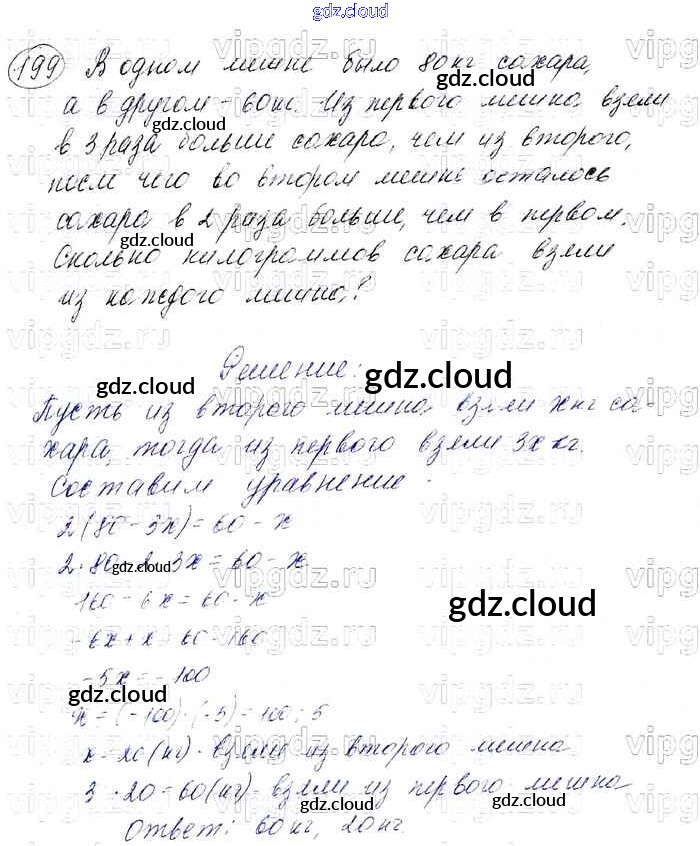 gdz.cloud
199 В одном мешке было 80 кг сахара,
gdz.cloud
а в другом - 60 кг. Из первого мешка взяли
gdz.cloud
в 3 раза больше сахара, чем из второго,
после чего во втором мешке осталось
сахара в 2 раза больше, чем в первом.
gdz.cloud
Сколько килограммов сахара взяли
из каждого мешка?
Решение:
gdz.cloud
gdz.cloud
Пусть из второго мешка взяли x кг са-
хара, тогда из первого взяли 3x кг.
Составим уравнение
2(80 - 3x) = 60 - x
2·80 - 2·3x = 60 - x
gdz.cloud
160 - 6x = 60 - x
gdz.cloud
-6x + x = 60 - 160
-5x = -100
gdz.cloud
x = (-100) : (-5) = 100 : 5
x = 20 (кг) - взяли из второго мешка
3 · 20 = 60 (кг) - взяли из первого мешка
gdz.cloud
gdz.cloud
Ответ: 60 кг, 20 кг.